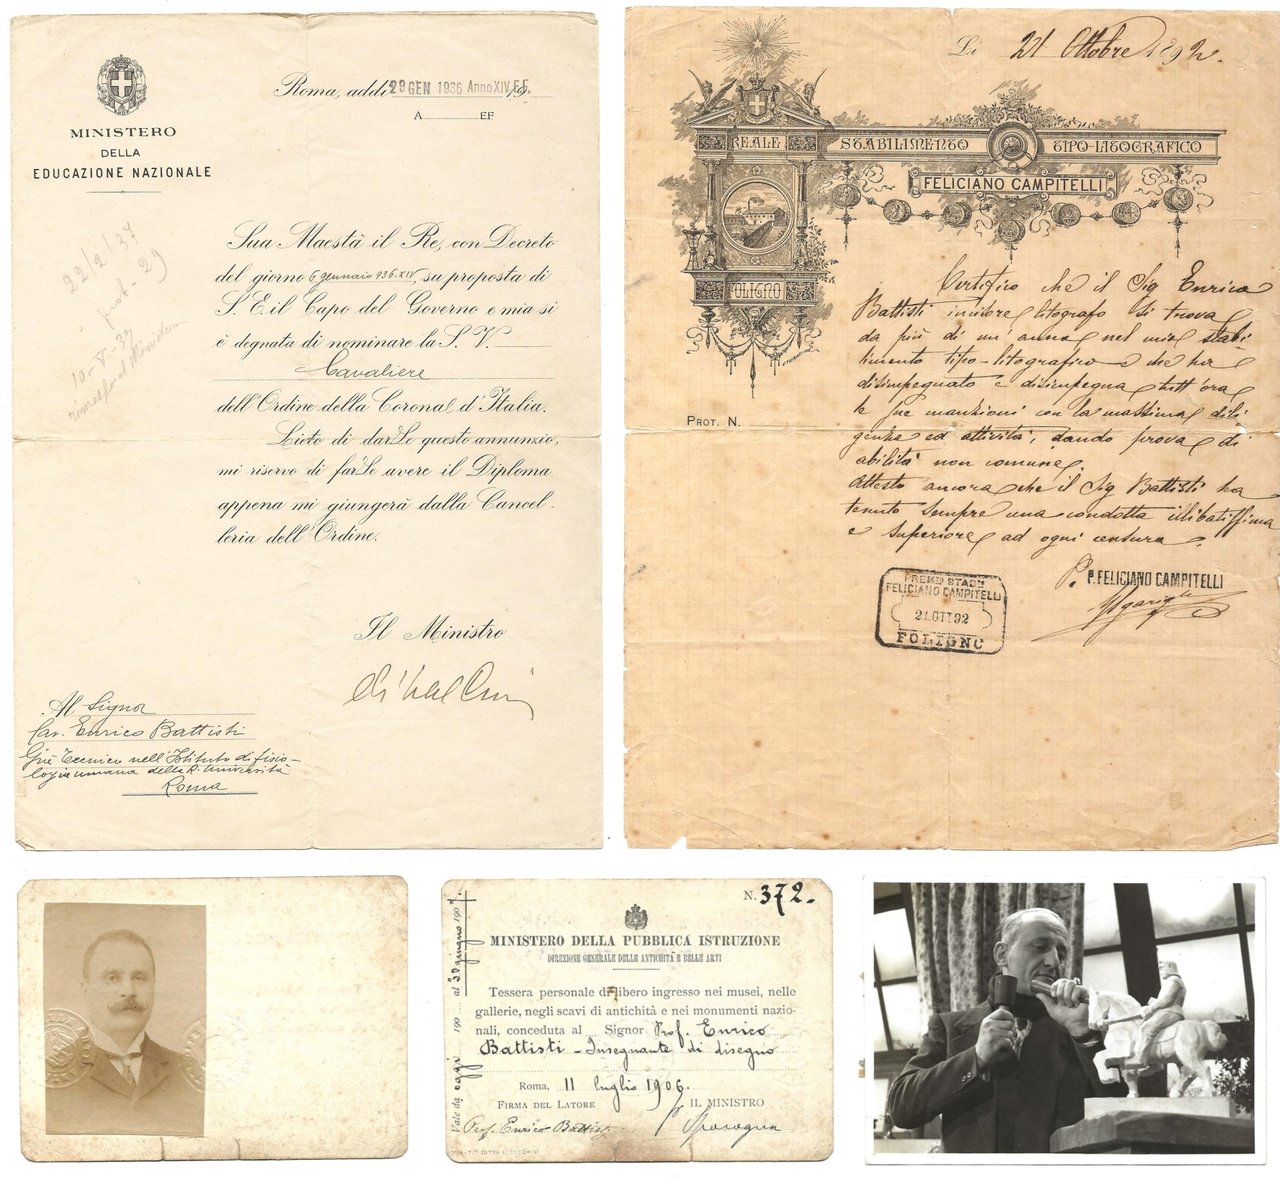 MINISTERO
DELLA
EDUCAZIONE NAZIONALE
Roma, addì 29 GEN 1936 Anno XIV E.F. 19
A EF
22/2/37
prot. 29
10-V-37
Sua Maestà il Re, con Decreto
del giorno 6 gennaio 936.XIV, su proposta di
S. E. il Capo del Governo e mia si
è degnata di nominare la S. V.
Cavaliere
dell'Ordine della Corona d'Italia.
Lieto di darLe questo annunzio,
mi riservo di farLe avere il Diploma
appena mi giungerà dalla Cancel-
leria dell'Ordine.
Il Ministro
Al Signor
Cav. Enrico Battisti
Già Tecnico nell'Istituto di fisio-
logia umana della R. Università
Roma
Li 21 Ottobre 1892.
REALE STABILIMENTO TIPO-LITOGRAFICO
FELICIANO CAMPITELLI
FOLIGNO
PROT. N.
Certifico che il Sig Enrico
Battisti incisore litografo si trova
da più di un anno nel mio stabi-
limento tipo-litografico e che ha
disimpegnato e disimpegna tutt'ora
le sue mansioni con la massima dili
genza ed attività, dando prova di
abilità non comune.
Attesto ancora che il Sig Battisti ha
tenuto sempre una condotta illibatissima
e superiore ad ogni censura.
P. P. FELICIANO CAMPITELLI
PREMTO STABTO
FELICIANO CAMPITELLI
21 OTT 92
FOLIGNO
N. 372.
MINISTERO DELLA PUBBLICA ISTRUZIONE
DIREZIONE GENERALE DELLE ANTICHITÀ E BELLE ARTI
Tessera personale di libero ingresso nei musei, nelle
gallerie, negli scavi di antichità e nei monumenti nazio-
nali, conceduta al Signor Prof. Enrico
Battisti - Insegnante di disegno
Roma, 11 luglio 1906.
FIRMA DEL LATORE IL MINISTRO
Prof. Enrico Battisti
Vale da oggi 190 al 30 giugno 1907